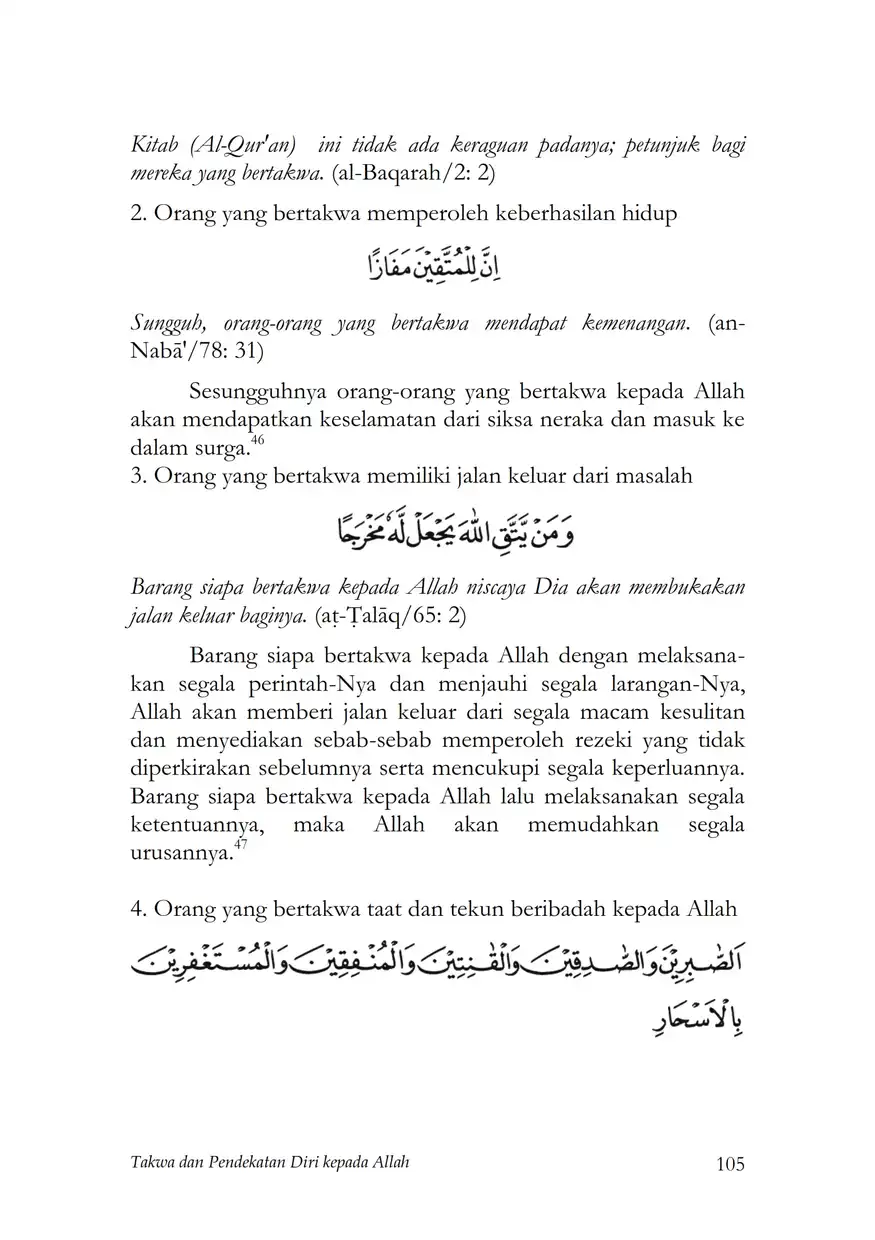 Kitab (Al-Qur'an) ini tidak ada keraguan padanya; petunjuk bagi
mereka yang bertakwa. (al-Baqarah/2: 2)
2. Orang yang bertakwa memperoleh keberhasilan hidup
اِنَّ لِلْمُتَّقِيْنَ مَفَازًا
Sungguh, orang-orang yang bertakwa mendapat kemenangan. (an-
Nabā'/78: 31)
Sesungguhnya orang-orang yang bertakwa kepada Allah
akan mendapatkan keselamatan dari siksa neraka dan masuk ke
dalam surga.46
3. Orang yang bertakwa memiliki jalan keluar dari masalah
وَمَنْ يَّتَّقِ اللّٰهَ يَجْعَلْ لَّهٗ مَخْرَجًا
Barang siapa bertakwa kepada Allah niscaya Dia akan membukakan
jalan keluar baginya. (aṭ-Ṭalāq/65: 2)
Barang siapa bertakwa kepada Allah dengan melaksana-
kan segala perintah-Nya dan menjauhi segala larangan-Nya,
Allah akan memberi jalan keluar dari segala macam kesulitan
dan menyediakan sebab-sebab memperoleh rezeki yang tidak
diperkirakan sebelumnya serta mencukupi segala keperluannya.
Barang siapa bertakwa kepada Allah lalu melaksanakan segala
ketentuannya, maka Allah akan memudahkan segala
urusannya.47
4. Orang yang bertakwa taat dan tekun beribadah kepada Allah
اَلصّٰبِرِيْنَ وَالصّٰدِقِيْنَ وَالْقٰنِتِيْنَ وَالْمُنْفِقِيْنَ وَالْمُسْتَغْفِرِيْنَ
بِالْاَسْحَارِ
Takwa dan Pendekatan Diri kepada Allah 105